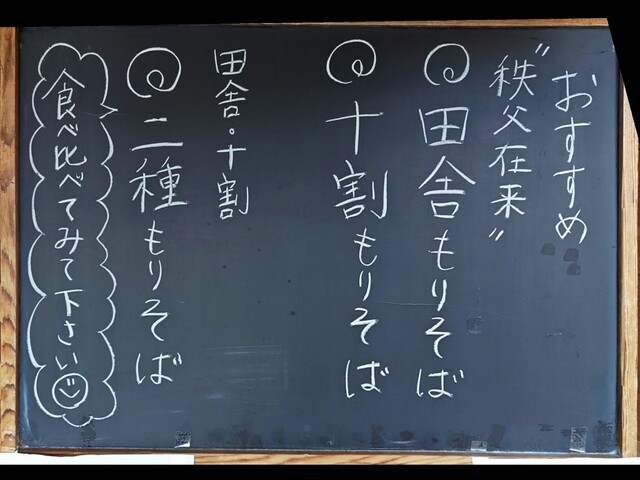 おすすめ
"秩父在来"
田舎もりそば
十割もりそば
田舎・十割
二種もりそば
食べ比べてみて下さい